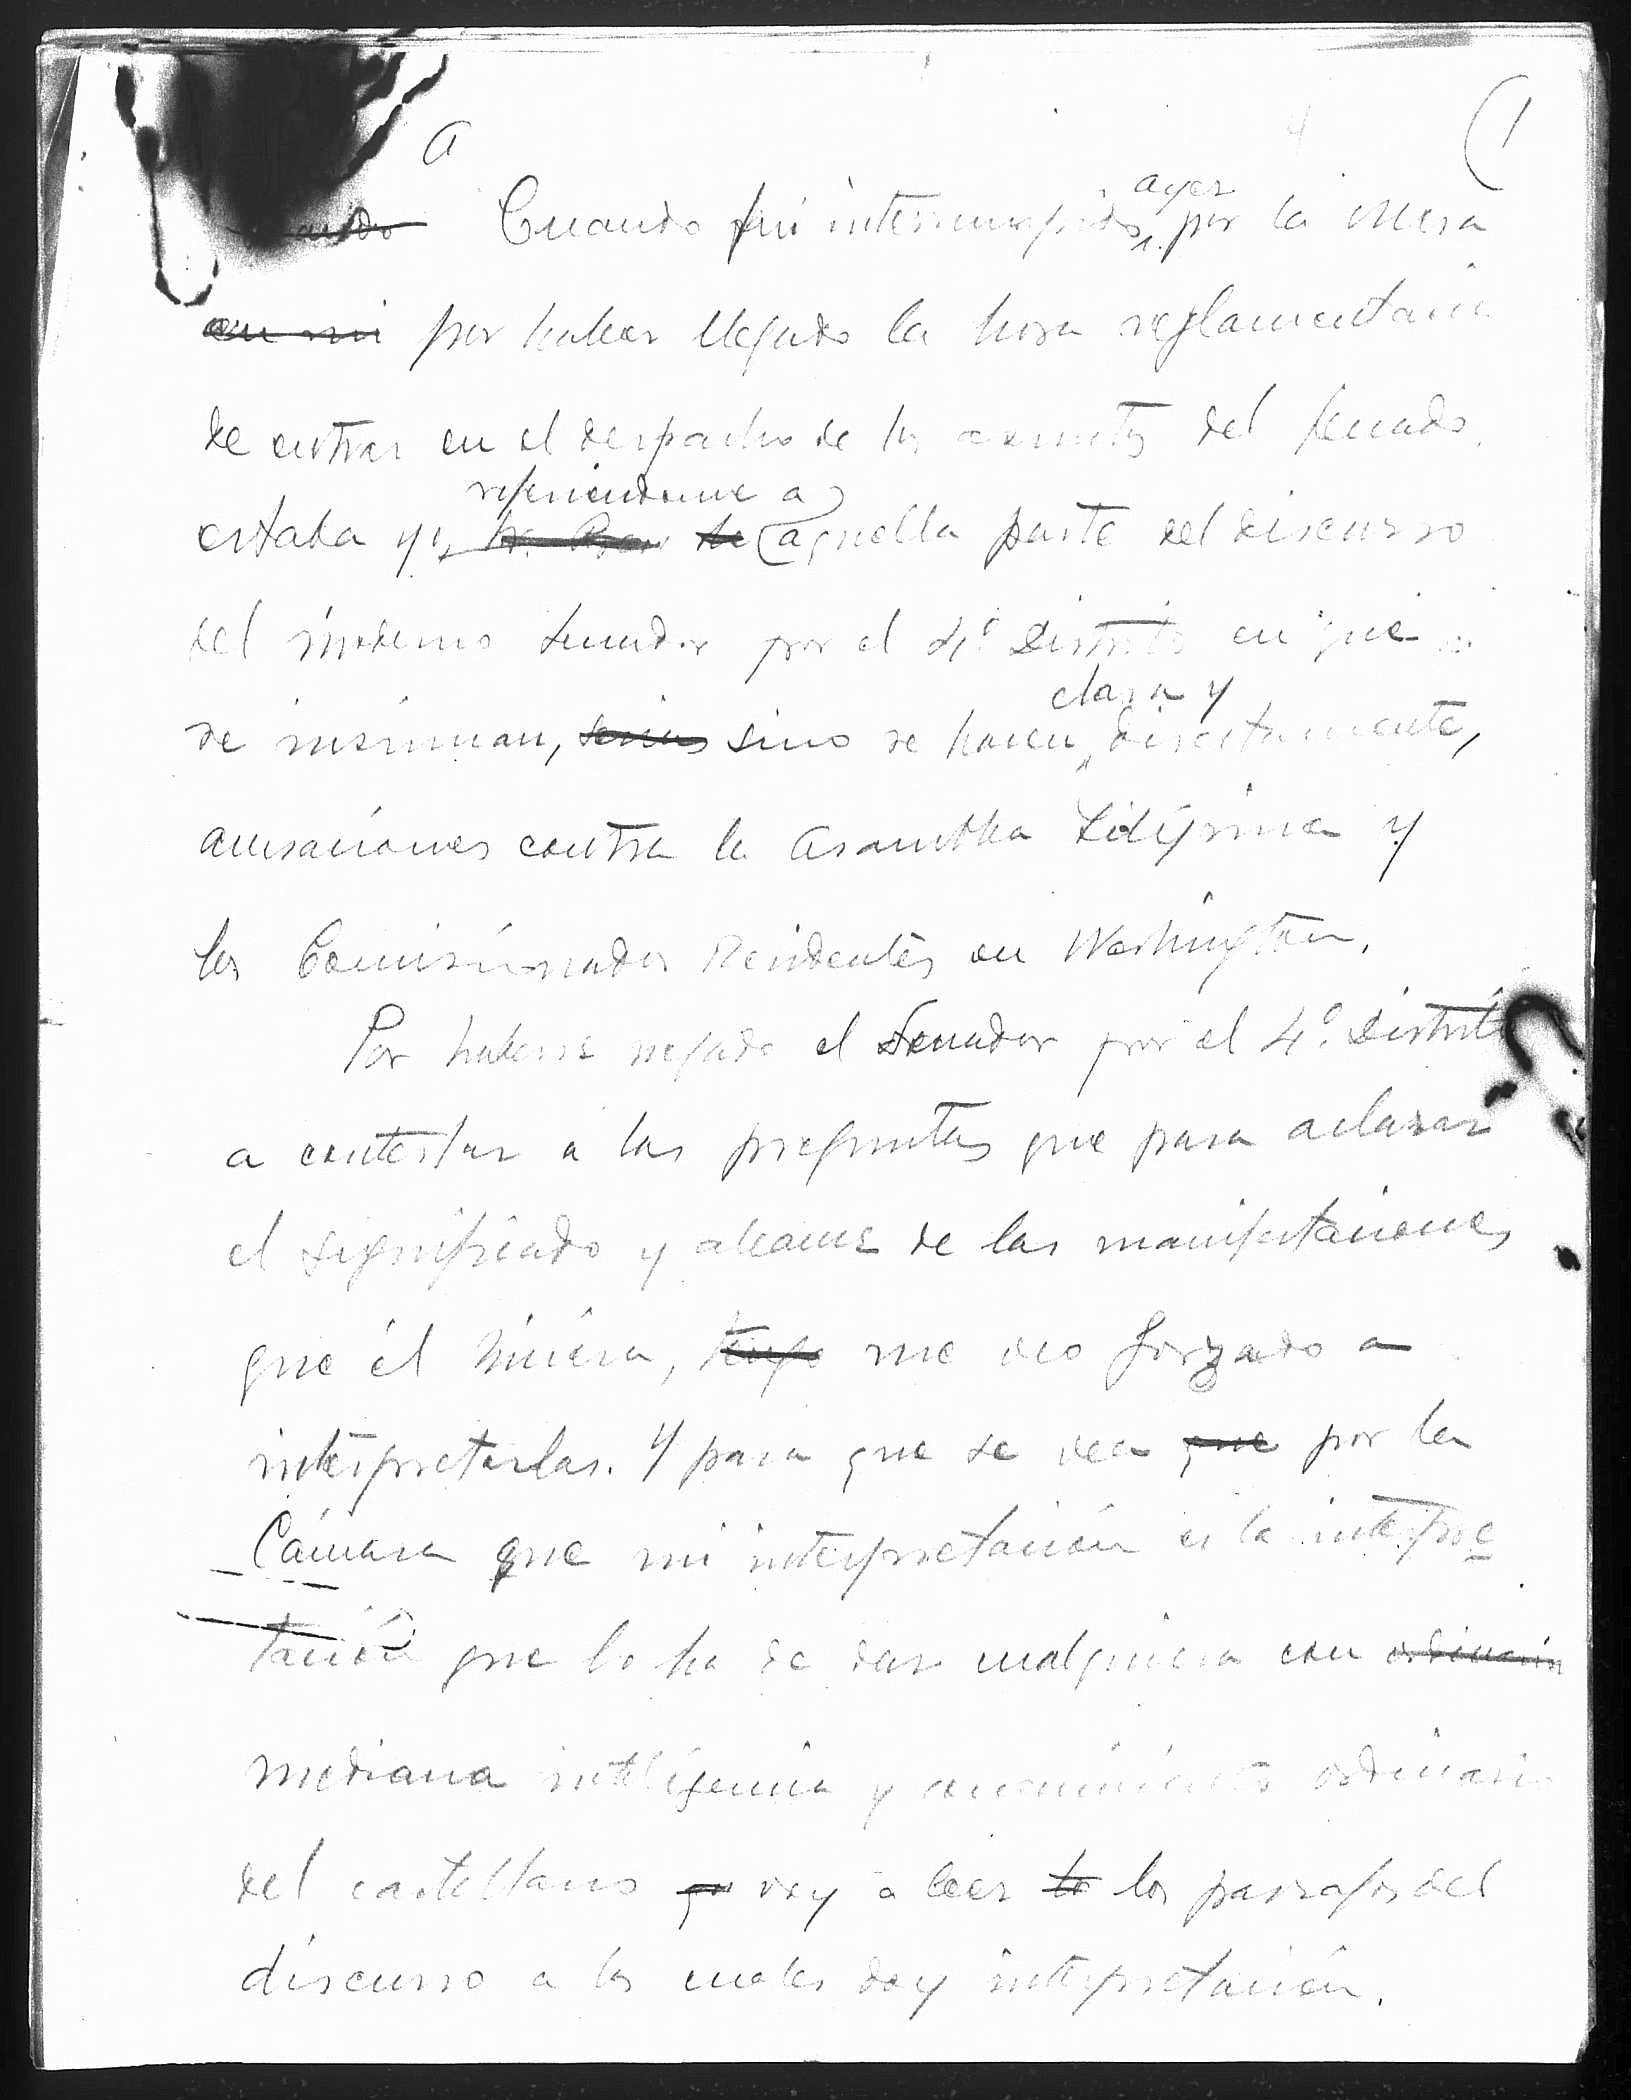 a
(1
Cuando fui interrumpido ayer por la Mesa
en mi por haber llegado la hora reglamentaria
de entrar en el despacho de los asuntos del Senado,
refiriendome a
estaba yo aquella parte del discurso
del moderno Senador por el 4º Distrito en que
clara y
se insinuan, sino se hacen directamente,
acusaciones contra la Asamblea Filipina y
los Comisionados Residentes en Washington.
Por haberse negado el Senador por el 4º Distrito
a contestar a las preguntas que para aclarar
el significado y alcance de las manifestaciones
que él hiciera, tengo me veo forzado a
interpretarlas. Y para que se vea que por la
Cámara que mi interpretación es la interpre
tación que le ha de dar cualquiera con ordinaria
mediana inteligencia y conocimiento ordinario
del castellano voy a leer lo los parrafos del
discurso a los cuales doy interpretación.